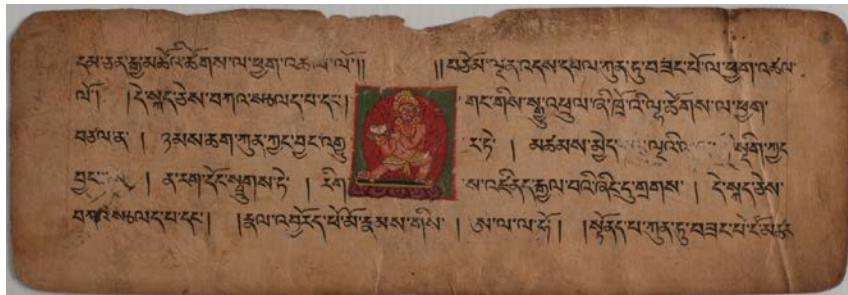 དམ་ཅན་རྒྱ་མཚོའི་ཚོགས་ལ་ཕྱག་འཚལ་ལོ།། །།བཅོམ་ལྡན་འདས་དཔལ་ཀུན་ཏུ་བཟང་པོ་ལ་ཕྱག་འཚལ་
ལོ། །དེ་སྐད་ཅེས་བཀའ་སྩལད་པ་དང་། གང་གིས་སྒྱུ་འཕྲུལ་ཞི་ཁྲོ་འི་ལྷ་ཚོགས་ལ་ཕྱག་
བཙལ་ན། ཉམས་ཆག་ཀུན་ཀྱང་བྱང་འགྱུ ར་ཏེ། མཚམས་མྱེད་ ལྔའི་ སྡིག་ཀྱང་
བྱང་ ། ན་རག་དོང་སྤྲུགས་ཏེ། རིག ས་འཛིནད་རྒྱལ་བའི་ཞིང་དུ་གྲགས། དེ་སྐད་ཅེས་
བཀའ་སྩལད་པ་དང་། །རྣལ་འབྱོརད་ཕ་མོ་རྣམས་གིས། ཨ་ལ་ལ་ཧོ། །སྟོནད་པ་ཀུན་ཏུ་བཟང་པོ་ངོ་མཚར